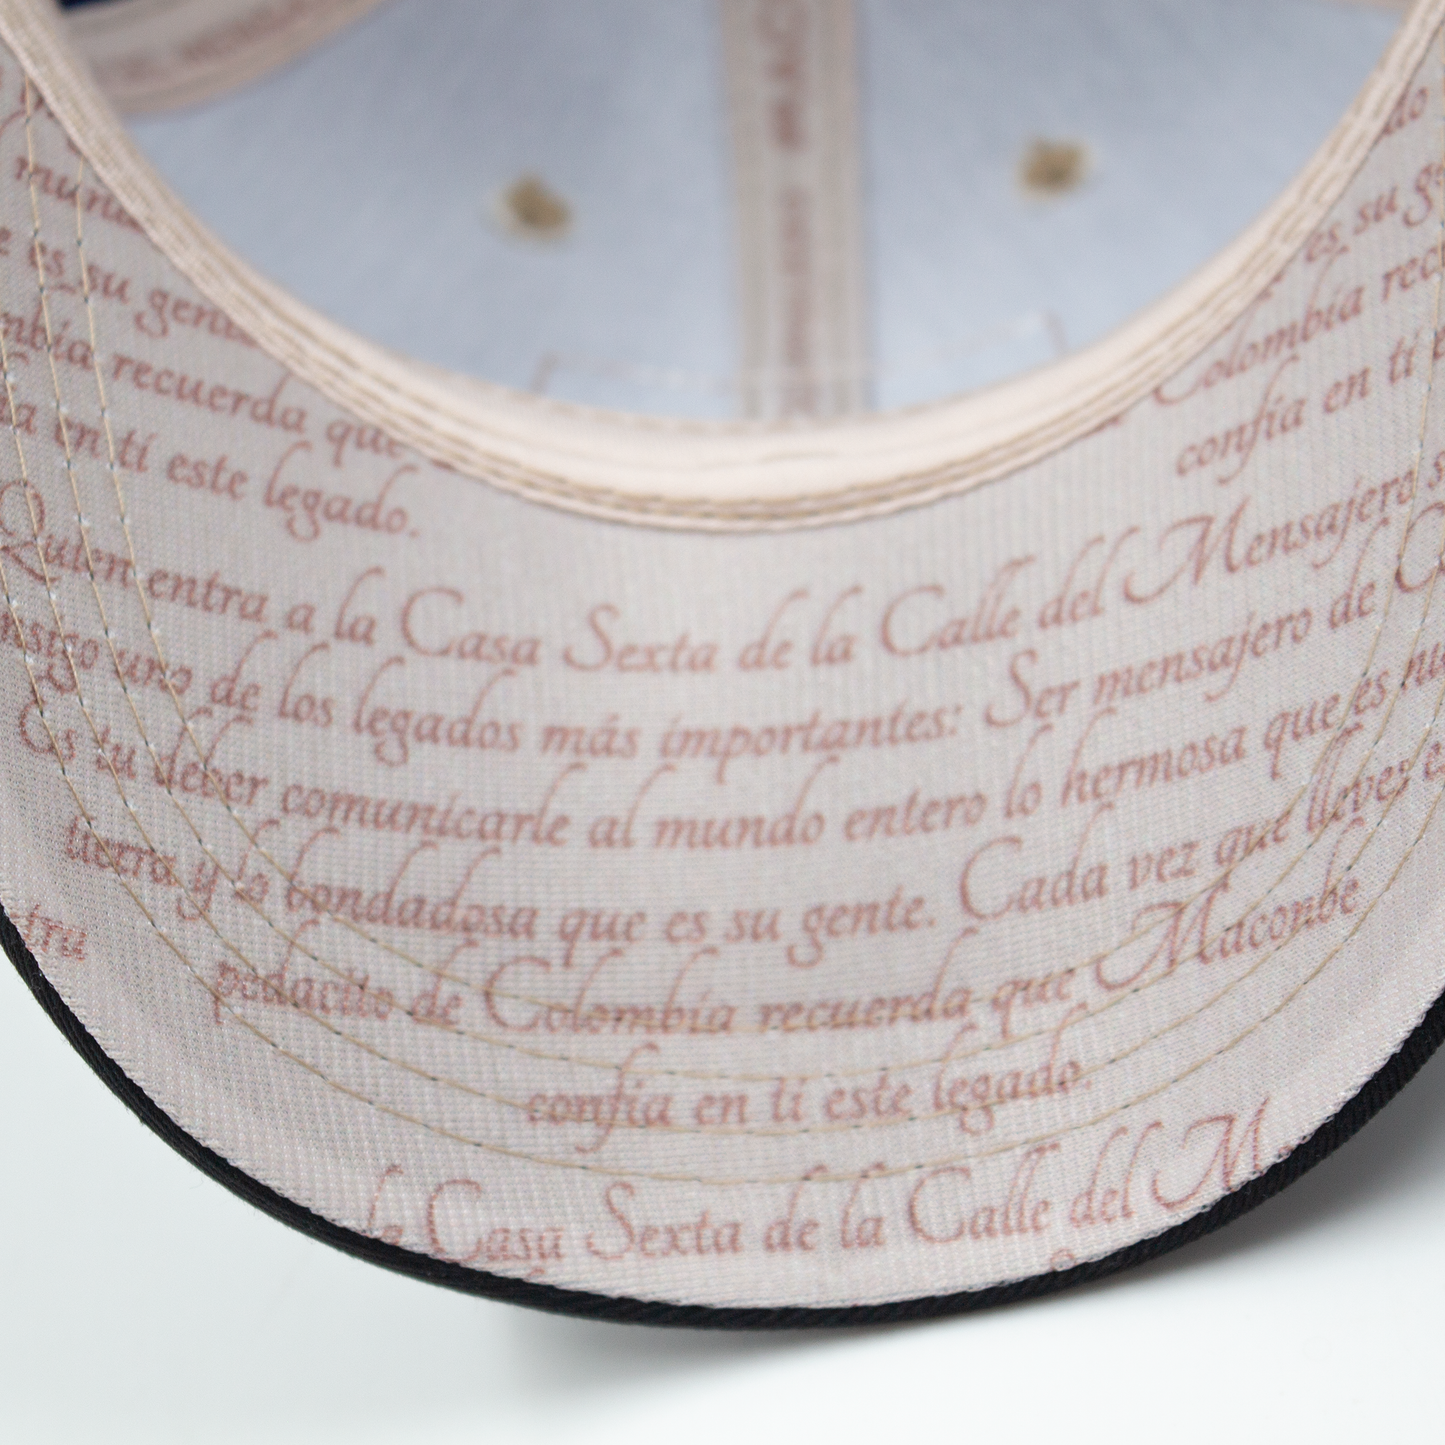 mund
do
e es su gente
es su ge
mbia recuerda que
Colombia recu
ía en ti este legado.
confía en ti e
Quien entra a la Casa Sexta de la Calle del Mensajero s
nsigo uno de los legados más importantes: Ser mensajero de Co
Es tu deber comunicarle al mundo entero lo hermosa que es nu
tierra y lo bondadosa que es su gente. Cada vez que lleves e
tru
pedacito de Colombia recuerda que Maconbe
confía en ti este legado.
la Casa Sexta de la Calle del M